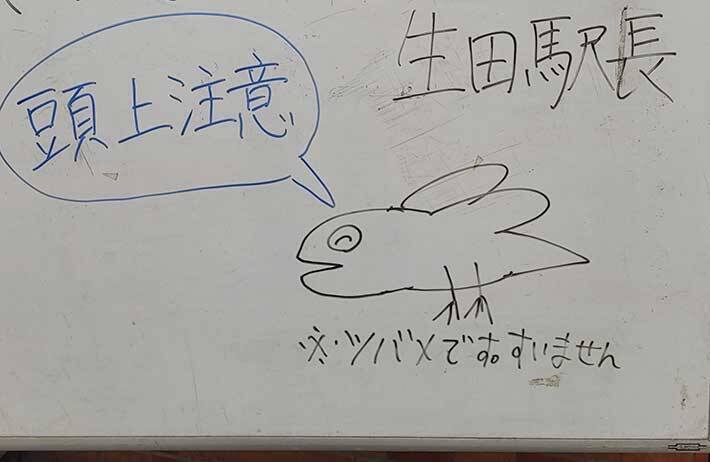 生田駅長
頭上注意
※ツバメです。すいません